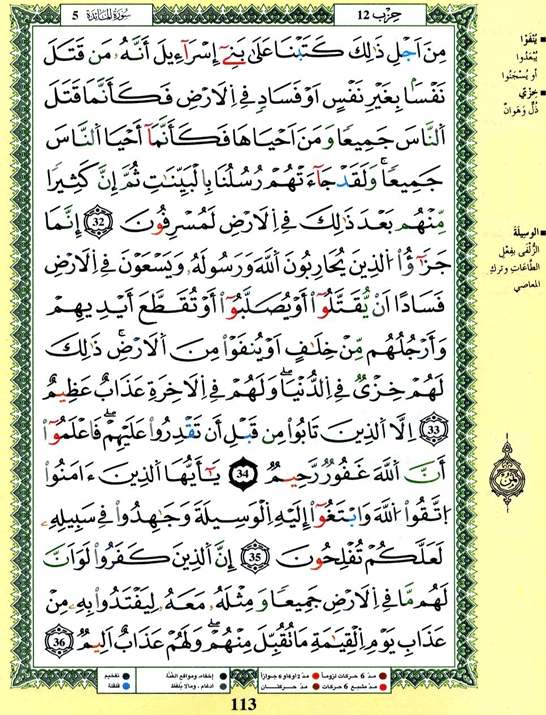 سُورَةُ المَائِدَة 5
حِزْب 12
مِنَ اَجْلِ ذَٰلِكَ كَتَبْنَا عَلَىٰ بَنِےٓ إِسْرَآءِيلَ أَنَّهُۥ مَن قَتَلَ
نَفْسَۢا بِغَيْرِ نَفْسٍ اَوْ فَسَادٍ فِے اِ۬لَارْضِ فَكَأَنَّمَا قَتَلَ
اَ۬لنَّاسَ جَمِيعاٗ وَمَنَ اَحْيَاهَا فَكَأَنَّمَآ أَحْيَا اَ۬لنَّاسَ
جَمِيعاٗۖ وَلَقَدْ جَآءَتْهُمْ رُسُلُنَا بِالْبَيِّنَٰتِ ثُمَّ إِنَّ كَثِيراٗ
مِّنْهُم بَعْدَ ذَٰلِكَ فِے اِ۬لَارْضِ لَمُسْرِفُونَ 32 إِنَّمَا
جَزَٰٓؤُاْ اُ۬لذِينَ يُحَارِبُونَ اَ۬للَّهَ وَرَسُولَهُۥ وَيَسْعَوْنَ فِے اِ۬لَارْضِ
فَسَاداً اَنْ يُّقَتَّلُوٓاْ أَوْ يُصَلَّبُوٓاْ أَوْ تُقَطَّعَ أَيْدِيهِمْ
وَأَرْجُلُهُم مِّنْ خِلَٰفٍ اَوْ يُنفَوْاْ مِنَ اَ۬لَارْضِۖ ذَٰلِكَ
لَهُمْ خِزْيٞ فِے اِ۬لدُّنْيَاۖ وَلَهُمْ فِے اِ۬لَاخِرَةِ عَذَابٌ عَظِيمٌ
33 اِلَّا اَ۬لذِينَ تَابُواْ مِن قَبْلِ أَن تَقْدِرُواْ عَلَيْهِمْۖ فَاعْلَمُوٓاْ
أَنَّ اَ۬للَّهَ غَفُورٞ رَّحِيمٞ 34 يَٰٓأَيُّهَا اَ۬لذِينَ ءَامَنُواْ
اُ۪تَّقُواْ اُ۬للَّهَ وَابْتَغُوٓاْ إِلَيْهِ اِ۬لْوَسِيلَةَ وَجَٰهِدُواْ فِے سَبِيلِهِۦ
لَعَلَّكُمْ تُفْلِحُونَ 35 إِنَّ اَ۬لذِينَ كَفَرُواْ لَوَ اَنَّ
لَهُم مَّا فِے اِ۬لَارْضِ جَمِيعاٗ وَمِثْلَهُۥ مَعَهُۥ لِيَفْتَدُواْ بِهِۦ مِنْ
عَذَابِ يَوْمِ اِ۬لْقِيَٰمَةِ مَا تُقُبِّلَ مِنْهُمْۖ وَلَهُمْ عَذَابٌ اَلِيمٞ 36
يُنْفَوْا
يُبْعَدُوا
أو يُسْجَنُوا
خِزْيٌ
ذُلٌّ وَهَوانٌ
الوسِيلَةَ
الزُّلْفَى بِفِعْلِ
الطَّاعَاتِ وتَركِ
المعاصي
ثمن
مدّ 6 حركات لزوماً مدّ 2 أو 4 أو 6 جوازاً
مدّ مشبع 6 حركات مدّ حركتان
إخفاء، ومواقع الغُنَّة
إدغام، وما لا يُلفَظ
تفخيم
قلقلة
113